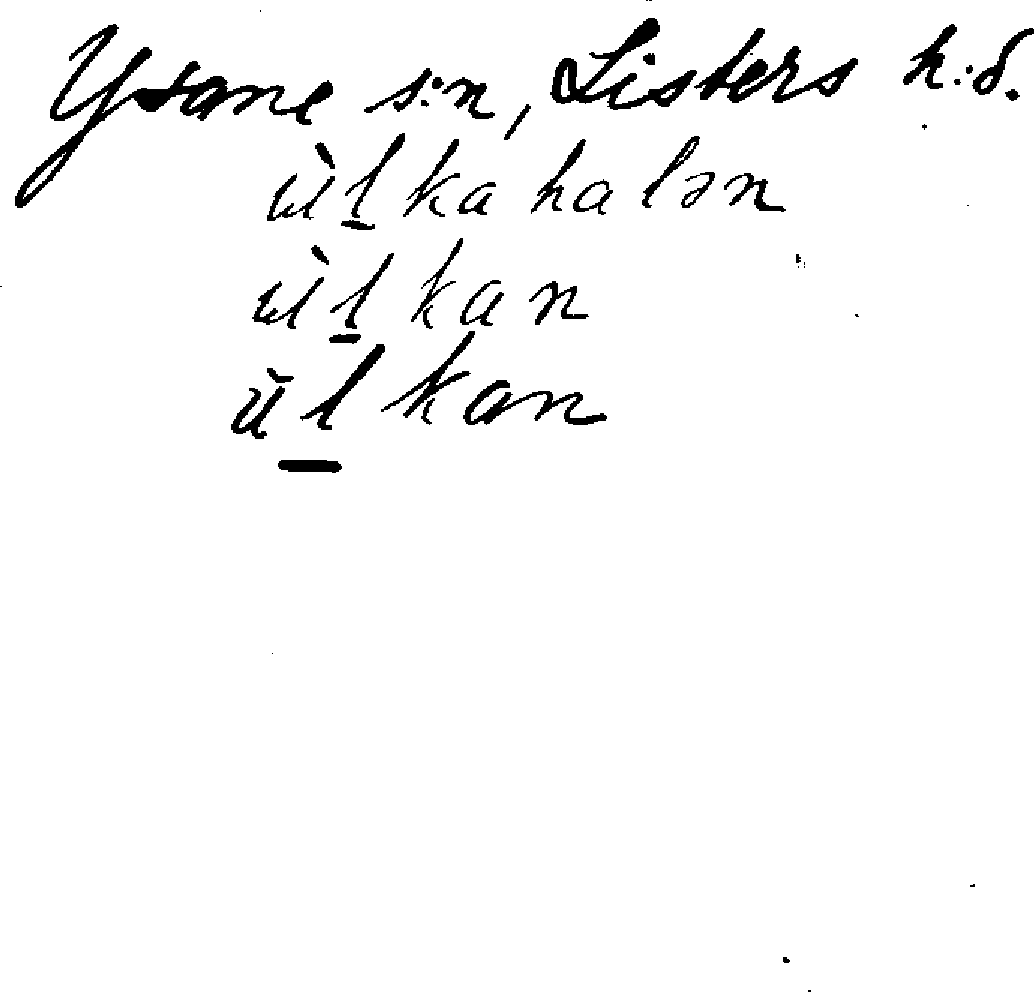 Ysane s:n, Listers h:d.
ùl̲kahalən
ùl̲kan
ŭl̲kan